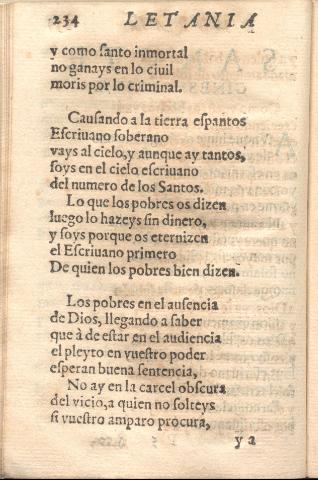 234 LETANIA
y como santo inmortal
no ganays en lo ciuil
moris por lo criminal.
Causando a la tierra espantos
Escriuano soberano
vays al cielo, y aunque ay tantos,
soys en el cielo escriuano
del numero de los Santos.
Lo que los pobres os dizen
luego lo hazeys sin dinero,
y soys porque os eternizen
el Escriuano primero
De quien los pobres bien dizen.
Los pobres en el ausencia
de Dios, llegando a saber
que à de estar en el audiencia
el pleyto en vuestro poder
esperan buena sentencia,
No ay en la carcel obscura
del vicio, a quien no solteys
si vuestro amparo procura,
ya